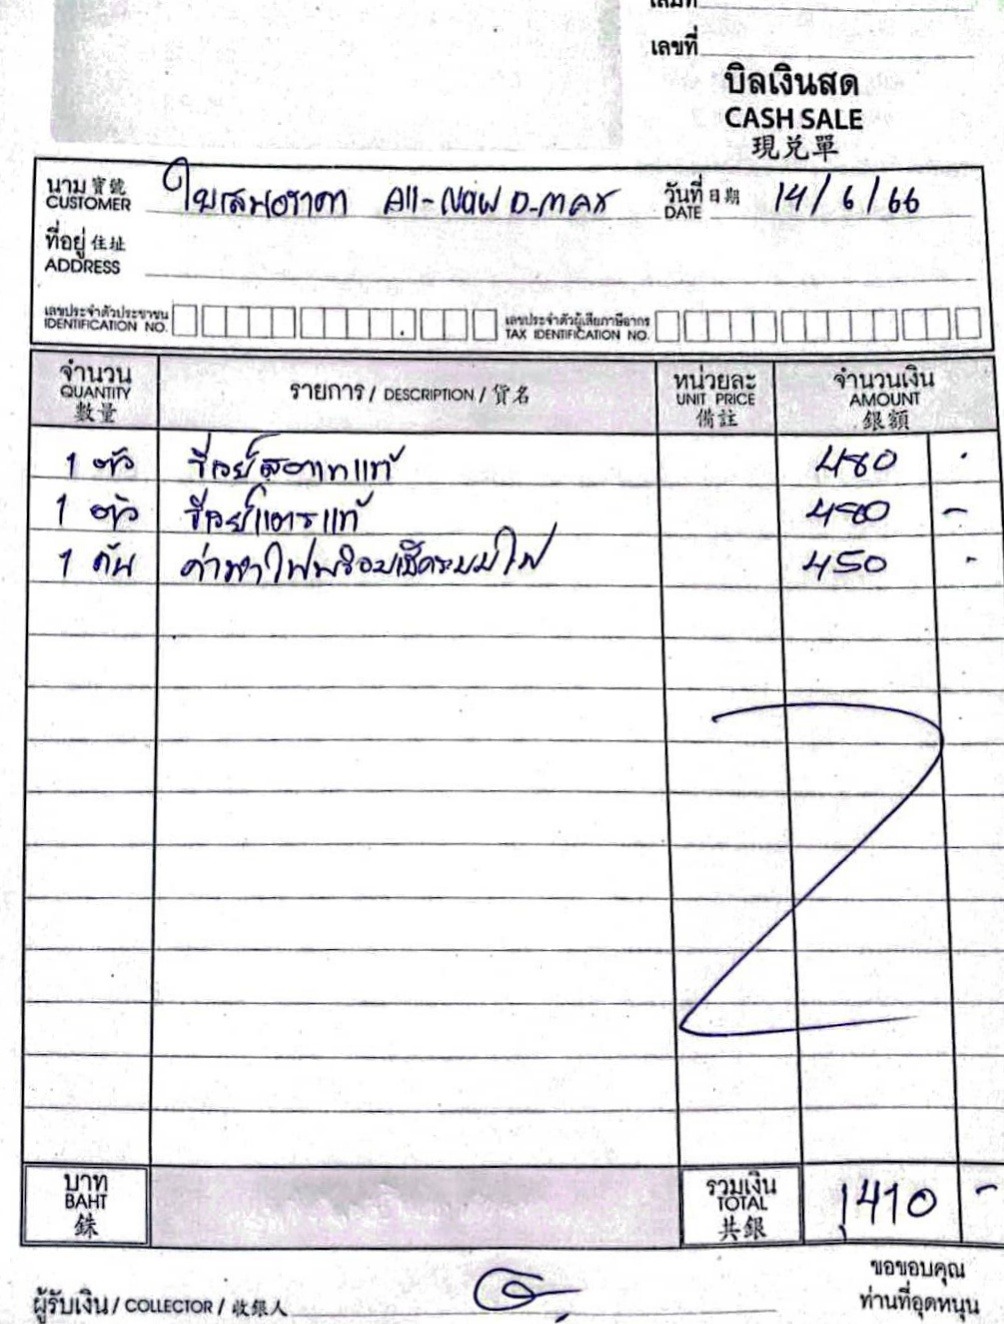 เล่มที่
เลขที่
บิลเงินสด
CASH SALE
現兌單
นาม 寶號 ใบเสนอราคา All-New D-max วันที่ 日期 14/6/66
CUSTOMER DATE
ที่อยู่ 住址
ADDRESS
เลขประจำตัวประชาชน เลขประจำตัวผู้เสียภาษีอากร
IDENTIFICATION NO. TAX IDENTIFICATION NO.
จำนวน รายการ / DESCRIPTION / 貨名 หน่วยละ จำนวนเงิน
QUANTITY UNIT PRICE AMOUNT
數量 備註 銀額
1 ตัว รีเลย์สตาทแท้ 480 -
1 ตัว รีเลย์แตรแท้ 480 -
1 คัน ค่าหาไฟพร้อมเช็คระบบไฟ 450 -
บาท รวมเงิน 1410 -
BAHT TOTAL
銖 共銀
ขอขอบคุณ
ผู้รับเงิน / COLLECTOR / 收銀人 ท่านที่อุดหนุน